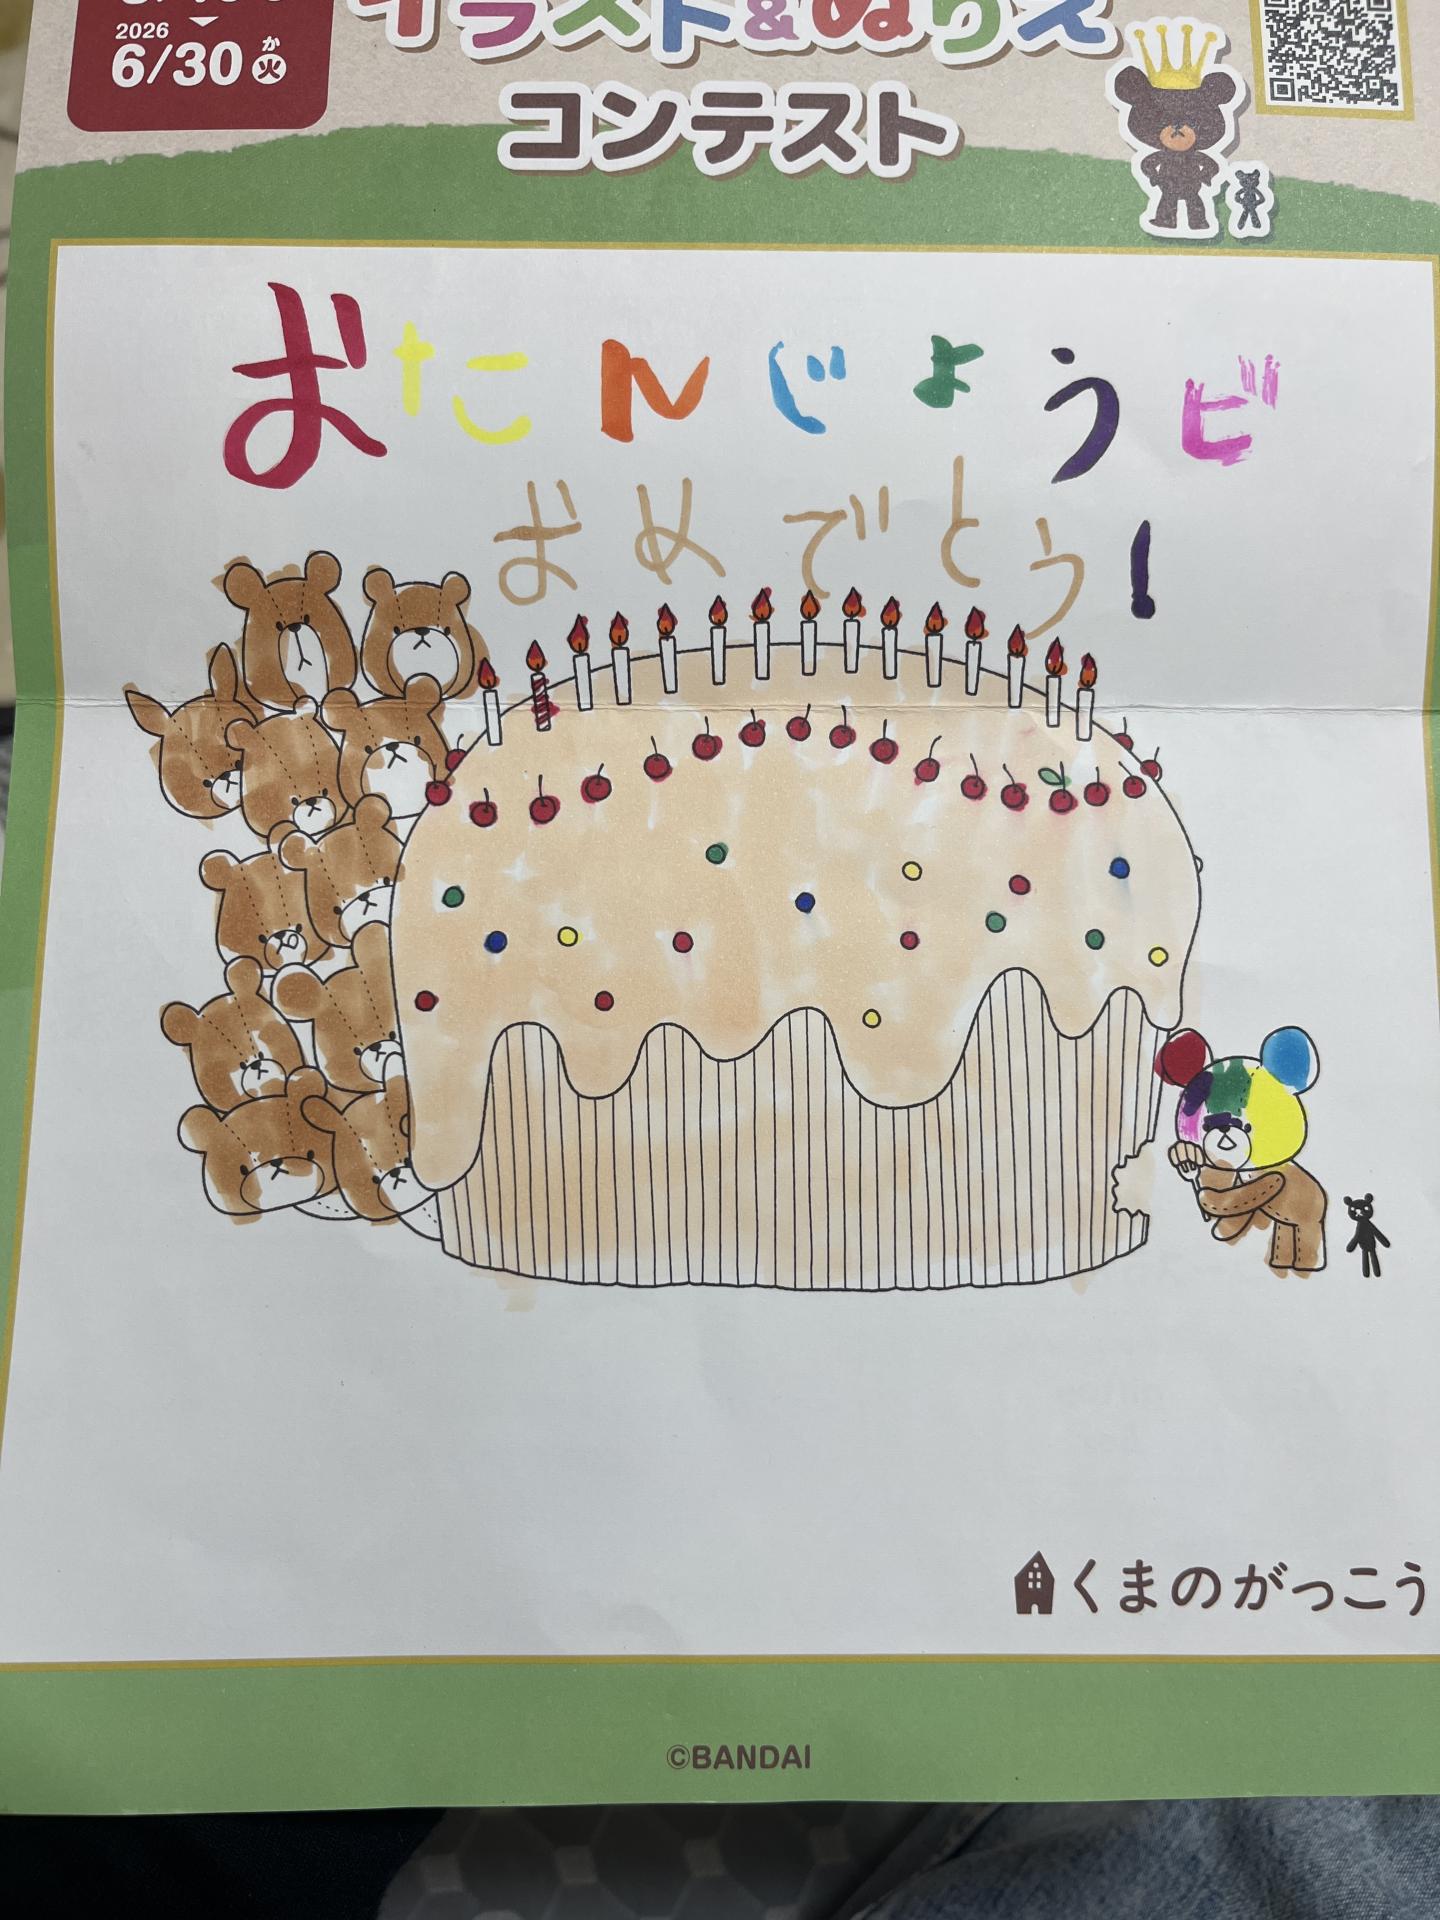 2026
6/30火
か
イラスト&ぬりえ
コンテスト
おたんじょうビ
おめでとう!
くまのがっこう
©BANDAI